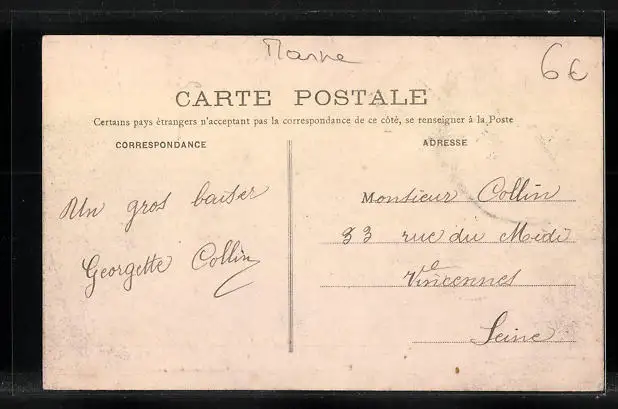 Marne
6€
CARTE POSTALE
Certains pays étrangers n'acceptant pas la correspondance de ce côté, se renseigner à la Poste
CORRESPONDANCE
Un gros baiser
Georgette Collin
ADRESSE
Monsieur Collin
33 rue du Midi
Vincennes
Seine